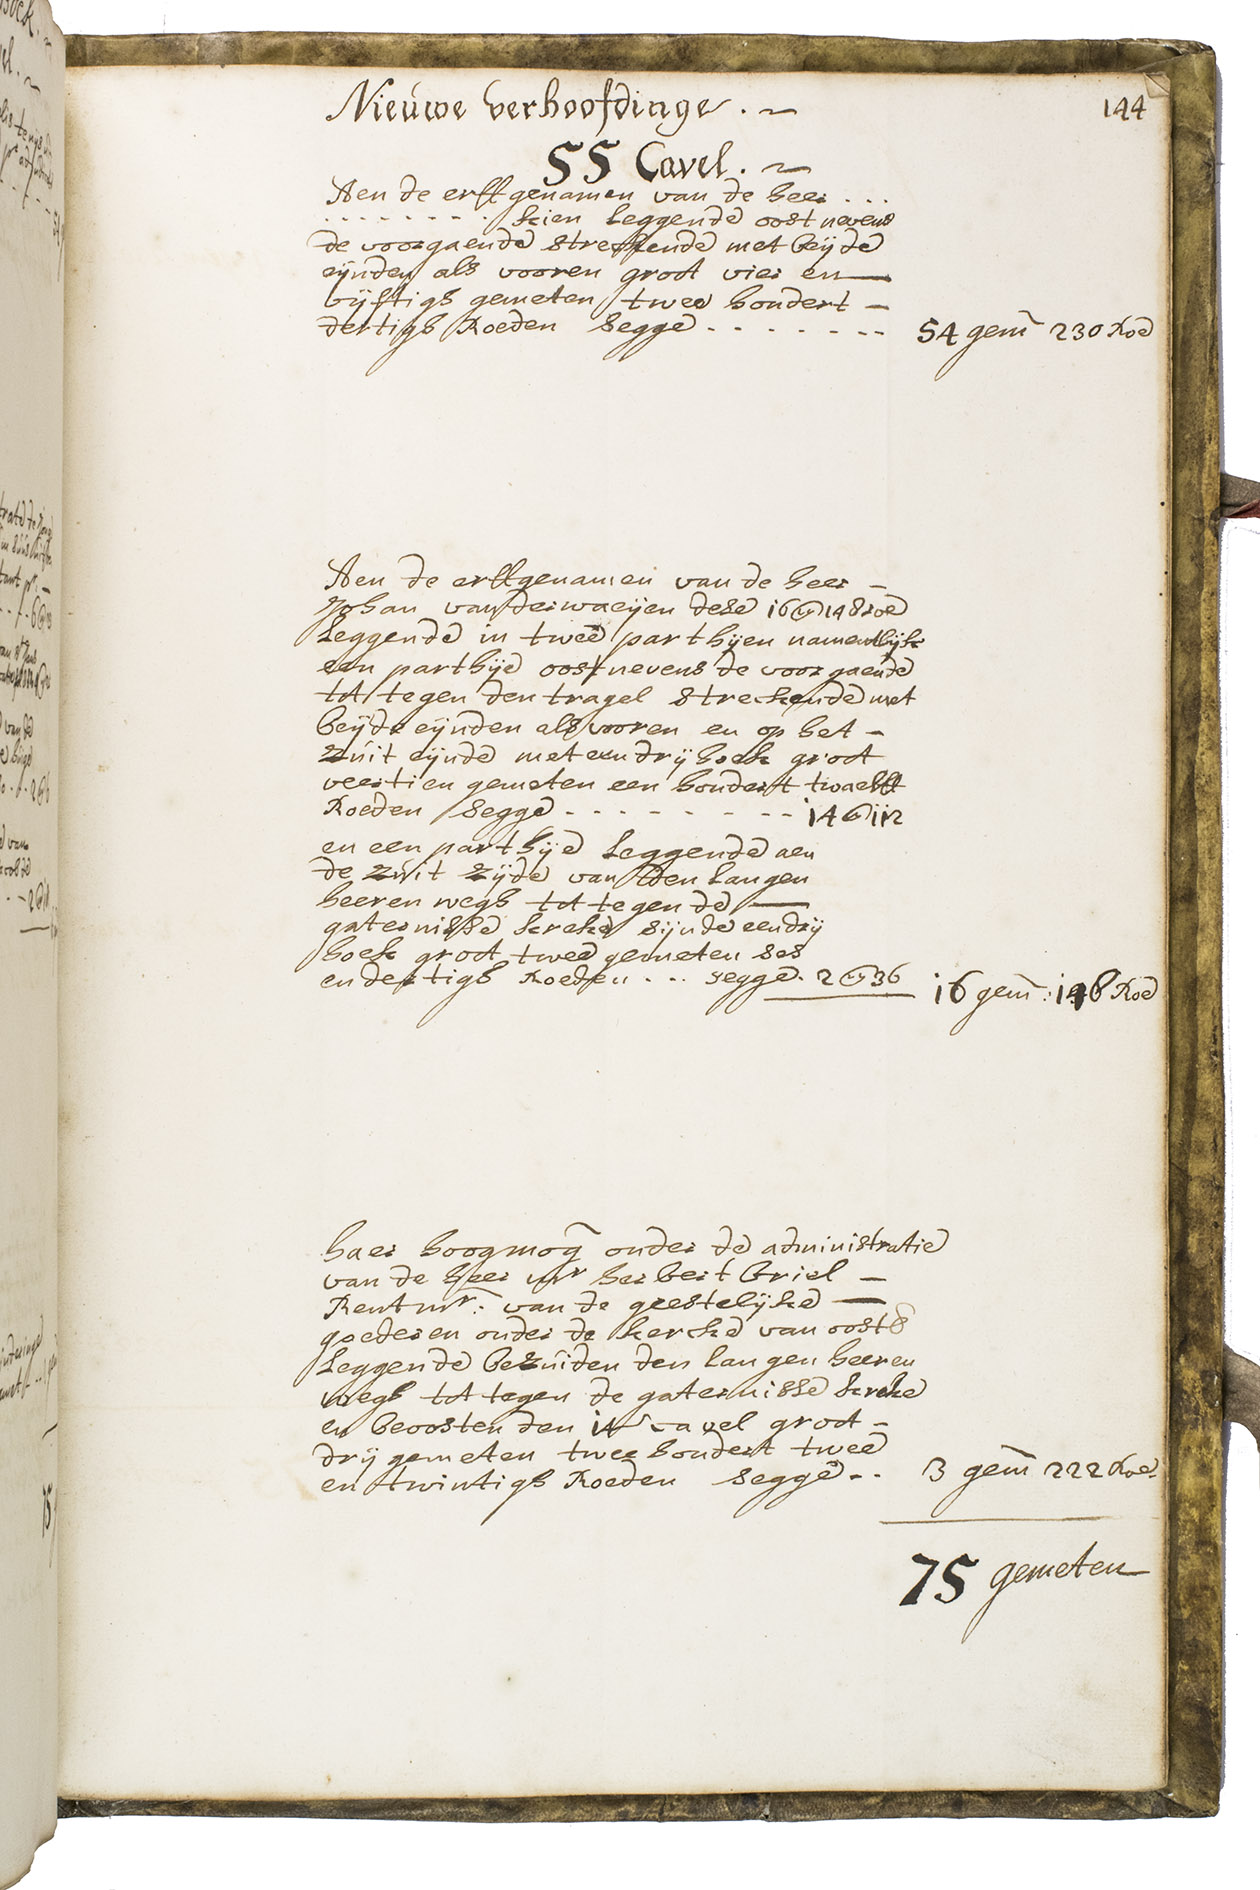 Nieuwe verhoofdinge. 144
55 Cavel.
Aen de erffgenamen van de heer ...
........ kien leggende oost nevens
de voorgaende streckende met beyde
eijnden als vooren groot vier en
vijftigh gemeten twee hondert
dertigh Roeden segge ........ 54 gem 230 Roe
Aen de erffgenamen van de heer
Johan vander waeijen dese 16 G 148 roe
leggende in twee parthijen namentlijck
een parthije oost nevens de voorgaende
tot tegen den tragel streckende met
beijde eijnden als vooren en op het
zuit eijnde met een drij hoek groot
veertien gemeten een hondert twaelff
Roeden segge ........ 14 G 112
en een parthije leggende aen
de zuit zijde van den langen
heeren wegh tot tegen de
gaternisse kreke sijnde een drij
hoek groot twee gemeten ses
en dertigh Roeden ... segge. 2 G 36 16 gem: 148 Roe
haer hoogmog onder de administratie
van de heer mr herbert briel
Rentmr: van de geestelijke
goederen onder de kercke van oost
leggende bezuiden den langen heeren
wegh tot tegen de gaternisse kreke
en beoosten den cavel groot
drij gemeten twee hondert twee
en twintigh Roeden segge .. 3 gem 222 Roe.
75 gemeten